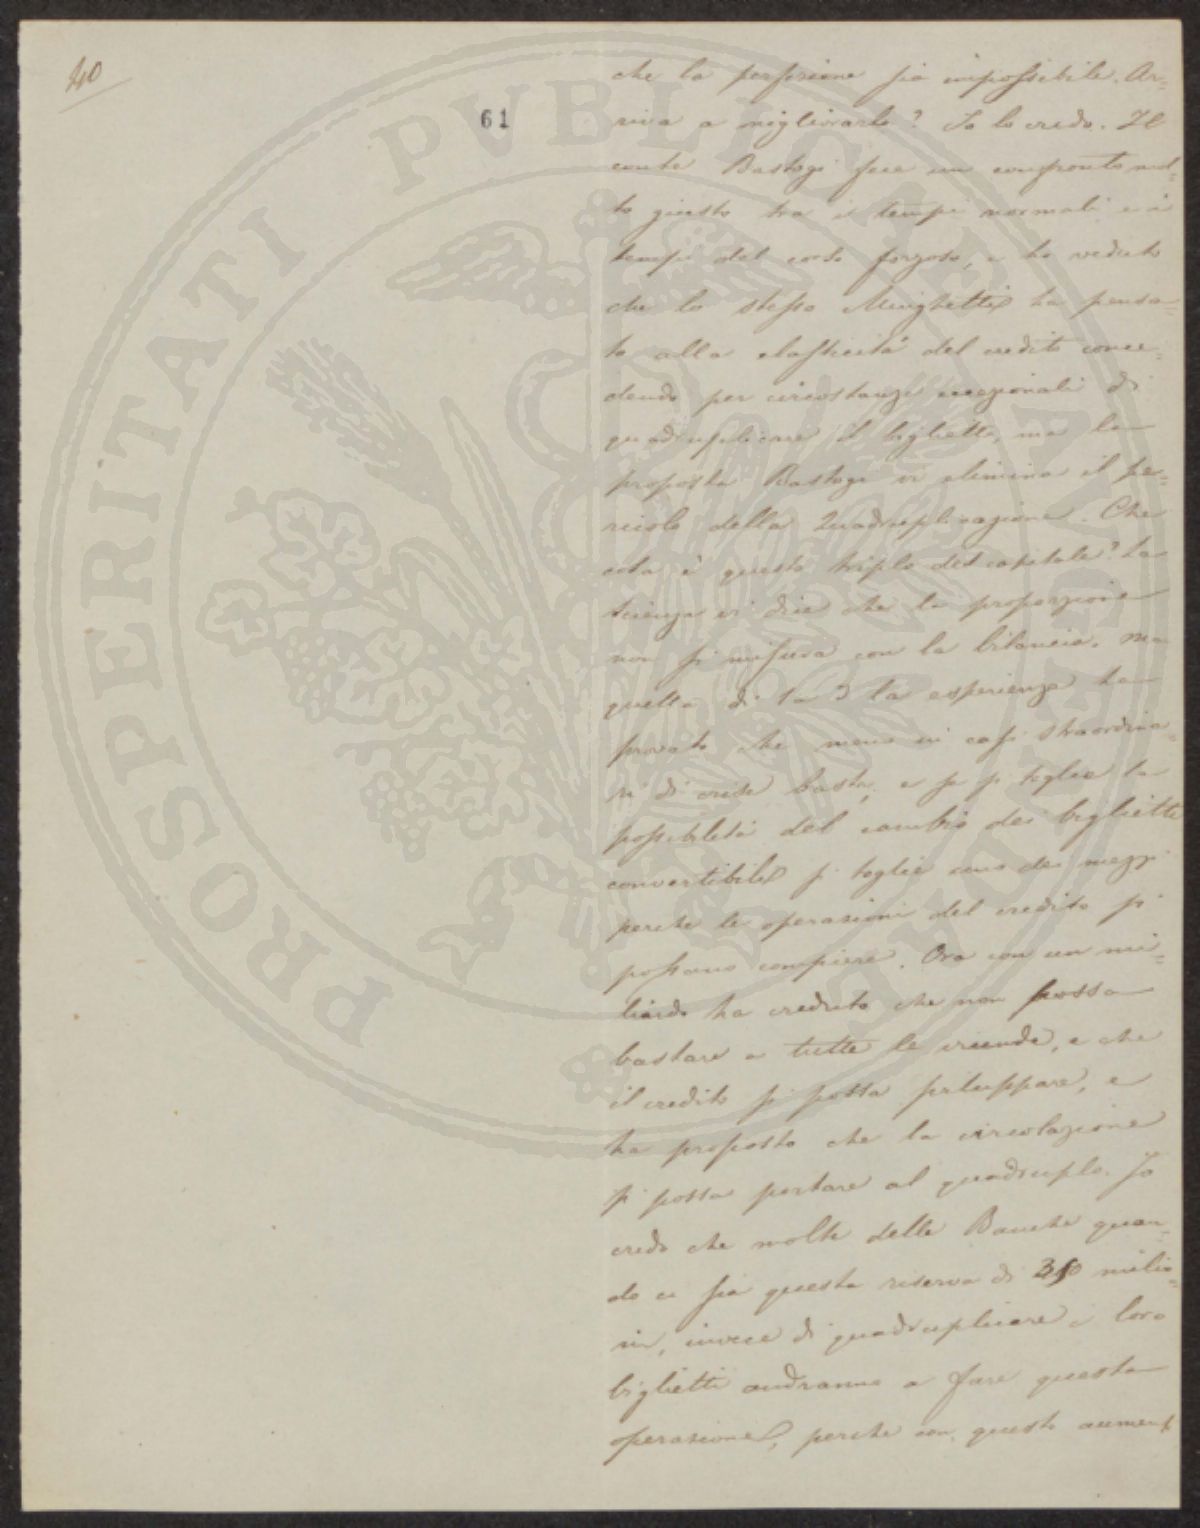 40
61
che la perfezione sia impossibile. Ar=
riva a migliorarlo? Io lo credo. Il
conte Bastogi fece un confronto mol=
to giusto tra i tempi normali e i
tempi del corso forzoso, e ha veduto
che lo stesso Minghetti ha pensa=
to alla elasticità del credito conce=
dendo per circostanze eccezionali di
quadruplicare il biglietto, ma la
proposta Bastogi vi elimina il pe=
ricolo della Quadruplicazione. Che
cosa è questo triplo del capitale? La
scienza vi dice che la proporzione
non si misura con la bilancia. Ma
quella di 1 a 3 la esperienza ha
provato che meno in casi straordina=
ri di crise basta, e se si toglie la
possibilità del cambio dei biglietti
convertibili si toglie uno dei mezzi
perche le operazioni del credito si
possano compiere. Ora con un mi=
liardo ha creduto che non possa
bastare a tutte le vicende, e che
il credito si possa sviluppare, e
ha proposto che la circolazione
si possa portare al quadruplo. Io
credo che molte delle Banche quan=
do ci sia questa riserva di 350 milio=
ni, invece di quadruplicare i loro
biglietti andranno a fare questa
operazione, perche con questo aument
PROSPERITATI PVBLICAE